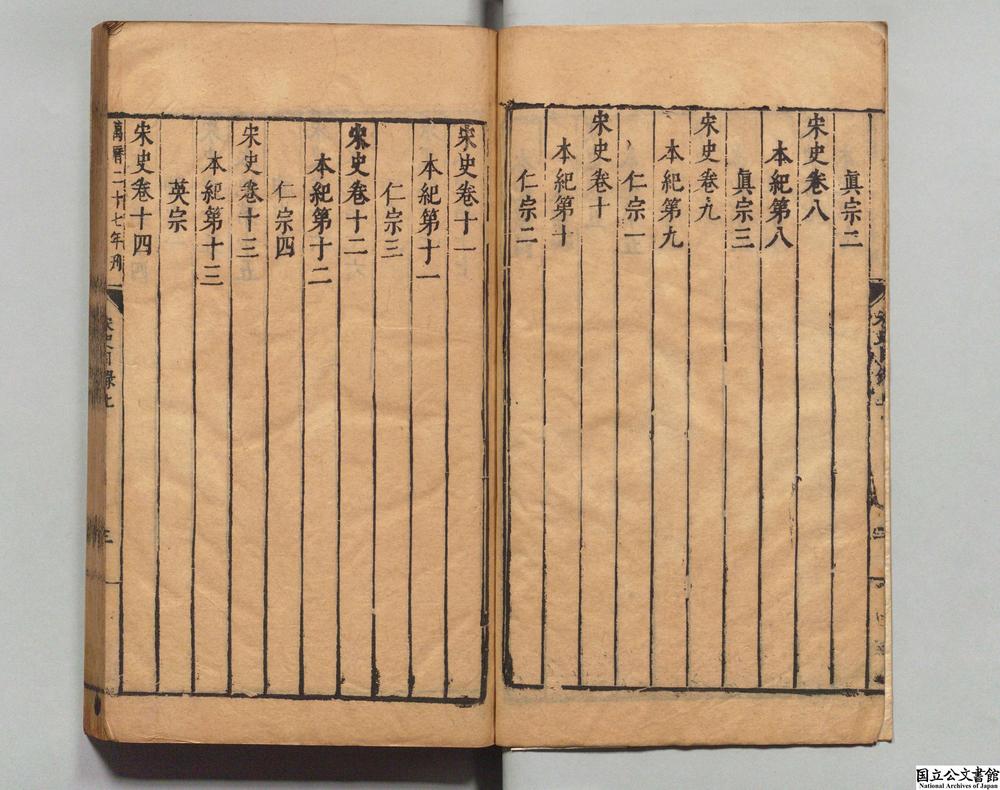 眞宗二
宋史卷八
本紀第八
眞宗三
宋史卷九
本紀第九
仁宗一
宋史卷十
本紀第十
仁宗二
宋史卷十一
本紀第十一
仁宗三
宋史卷十二
本紀第十二
仁宗四
宋史卷十三
本紀第十三
英宗
宋史卷十四
萬曆二十七年刊
宋史目錄上
三
国立公文書館
National Archives of Japan